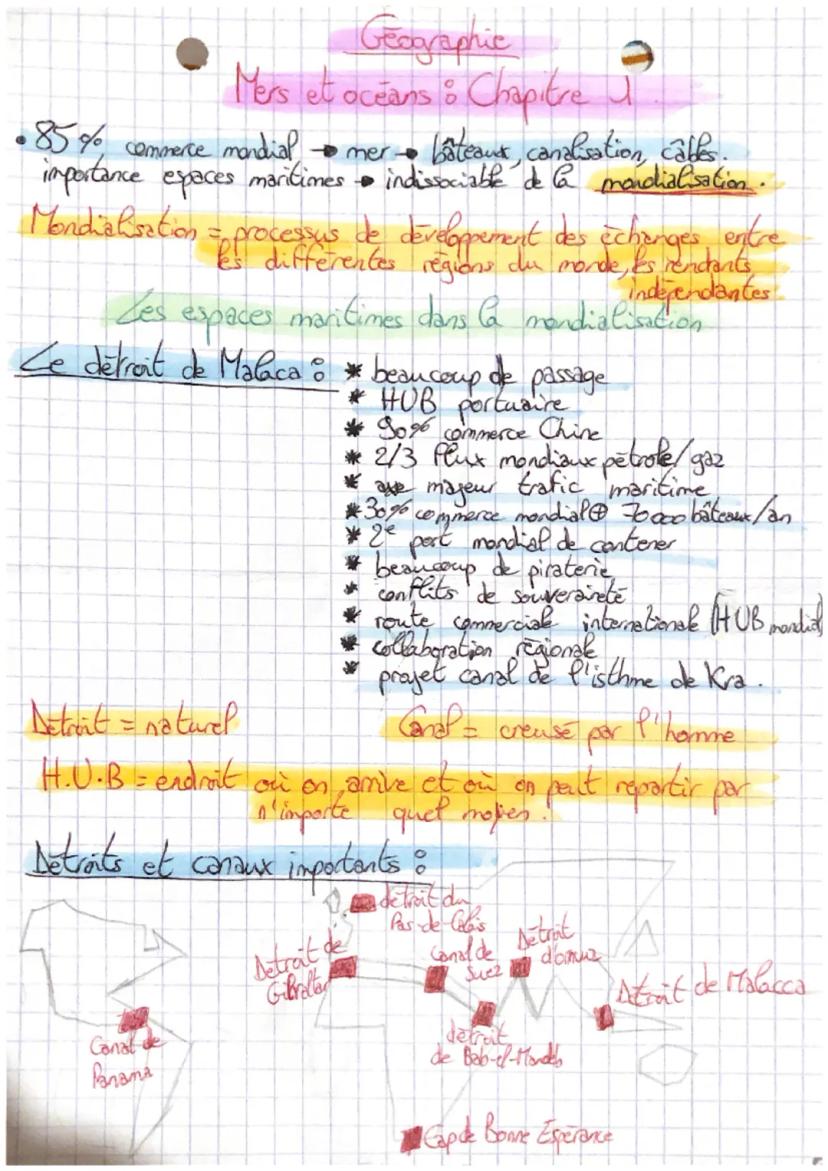 Géographie
Mers et océans : Chapitre 1
• 85% commerce mondial → mer → bâteaux, canalisation, câbles.
importance espaces maritimes → indissociable de la mondialisation.
Mondialisation = processus de développement des échanges entre
les différentes régions du monde, les rendants
indépendantes
Les espaces maritimes dans la mondialisation
Le détroit de Malaca : * beaucoup de passage
* HUB portuaire
* 90% commerce Chine
* 2/3 flux mondiaux pétrole/gaz
* axe majeur trafic maritime
* 30% commerce mondial ⊕ 70 000 bâteaux/an
* 2e port mondial de contener
* beaucoup de piraterie
* conflits de souveraineté
* route commerciale internationale (HUB mondial)
* collaboration régionale
* projet canal de l'isthme de Kra.
Détroit = naturel
Canal = creusé par l'homme
H.U.B = endroit où on arrive et où on peut repartir par
n'importe quel moyen.
Détroits et canaux importants :
détroit du
Pas-de-Calais
Détroit de
Gibraltar
Canal de
Suez
Détroit
d'ormuz
Détroit de Malacca
Canal de
Panama
détroit
de Bab-el-Mandeb
Cap de Bonne Espérance